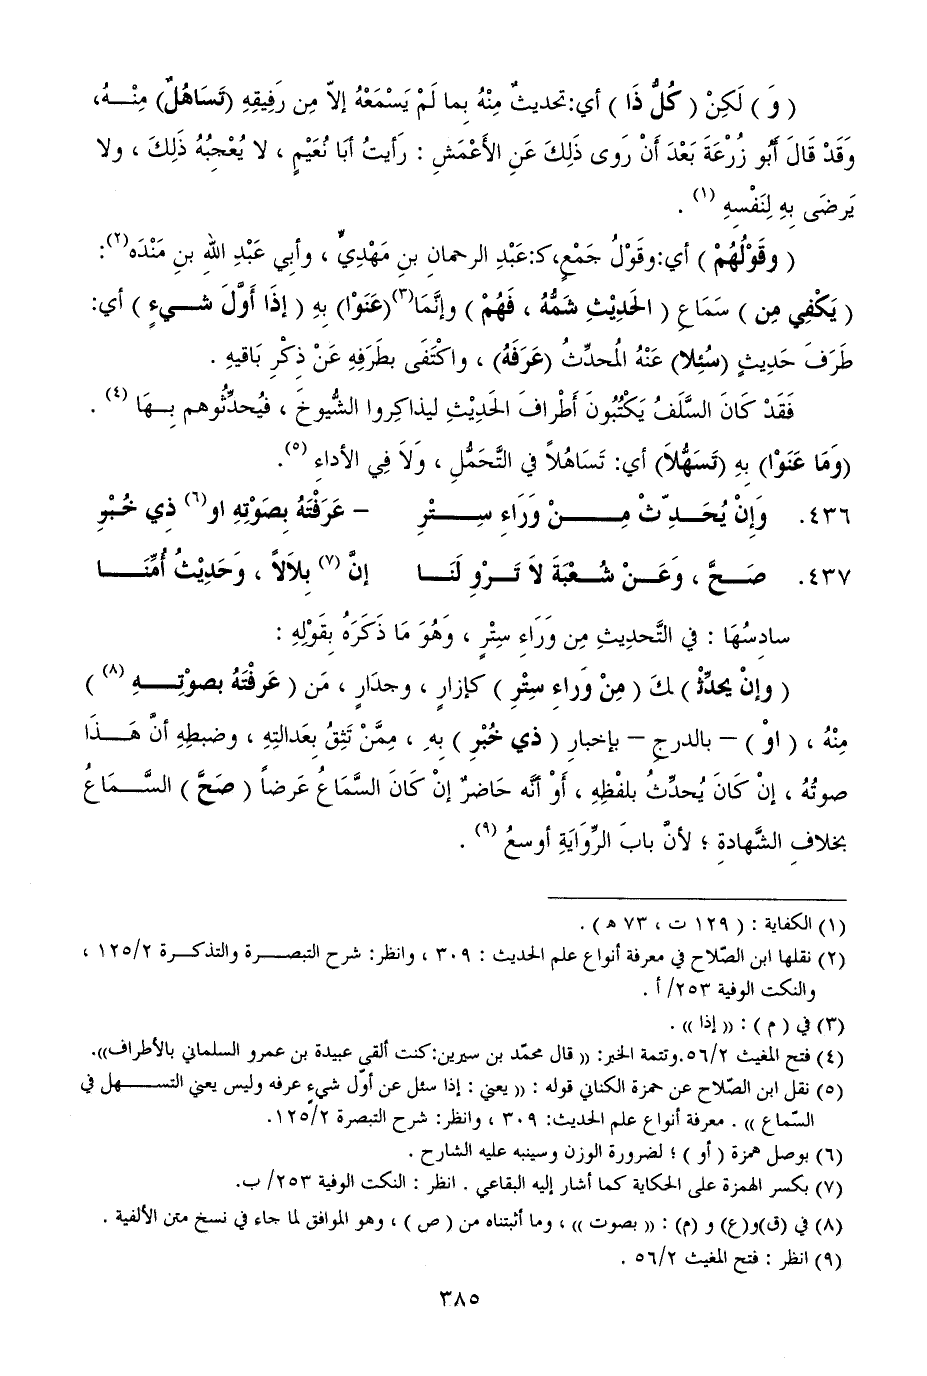 ( وَ ) لَكِنْ ( كُلُّ ذَا ) أي: تحديثٌ مِنْهُ بِما لَمْ يَسْمَعْهُ إلاّ مِن رَفِيقِهِ (تَسَاهُلٌ) مِنْـهُ،
وَقَدْ قَالَ أَبُو زُرْعَةَ بَعْدَ أنْ رَوى ذَلِكَ عَنِ الأَعْمَشِ : رَأيتُ أبَا نُعَيْمٍ ، لا يُعْجِبُهُ ذَلِكَ ، ولا
يَرضَى بِهِ لِنَفْسِهِ (١) .
( وقَوْلُهُمْ ) أي:وقَوْلُ جَمْعٍ، كـ:عَبْدِ الرحمانِ بنِ مَهْدِيٍّ ، وأبي عَبْدِ اللهِ بنِ مَنْدَه(٢):
( يَكْفِي مِن ) سَمَاعِ ( الحَدِيْثِ شَمُّهُ ، فَهُمْ ) وإنَّمَا(٣)(عَنَوْا) بِهِ ( إذَا أَوَّلَ شــيءٍ ) أي:
طَرَفَ حَدِيثٍ (سُئِلا) عَنْهُ المُحدِّثُ (عَرَفَهُ) ، واكْتَفَى بطَرَفِهِ عَنْ ذِكْرِ بَاقيهِ .
فَقَدْ كَانَ السَّلَفُ يَكْتُبُونَ أَطْرافَ الحَدِيْثِ ليذاكِروا الشُّيوخَ ، فَيُحدِّثُوهم بِـهَا (٤) .
(وَمَا عَنَوْا) بِهِ (تَسَهُّلاَ) أي: تَسَاهُلاً في التَّحَمُّلِ ، وَلاَ فِي الأداءِ (٥).
٤٣٦. وَإنْ يُحَـدِّثْ مِــنْ وَرَاءِ سِــتْرِ – عَرَفْتَهُ بِصَوْتِهِ او(٦) ذِي خُبْرِ
٤٣٧. صَـحَّ ، وَعَـنْ شُـعْبَةَ لاَ تَـرْوِ لَنَـا إنَّ (٧) بِلاَلاً ، وَحَدِيْثُ أُمِّنَــا
سادسُهَا : في التَّحديثِ مِن وَرَاءِ سِتْرٍ ، وَهُوَ مَا ذَكَرَهُ بِقَولِهِ :
( وإنْ يحدِّثْ ) لكَ ( مِنْ وَراءِ سِتْرِ ) كإزارٍ ، وجدَارٍ ، مَن ( عَرفْتَهُ بصوْتِــهِ (٨) )
مِنْهُ ، ( اوْ ) – بالدرجِ – بإخبارِ ( ذي خُبْرِ ) بِهِ ، مِمَّنْ تَثِقُ بِعَدالتِهِ ، وضبطِهِ أنَّ هَــذَا
صوتُهُ ، إنْ كَانَ يُحدِّثُ بلفْظِهِ ، أَوْ أنَّه حَاضرٌ إنْ كَانَ السَّمَاعُ عَرضاً ( صَحَّ ) السَّـمَاعُ
بخلافِ الشَّهادةِ ؛ لأنَّ بابَ الرِّوَايَةِ أوسعُ (٩) .
(١) الكفاية : ( ١٢٩ ت ، ٧٣ ه‍ ) .
(٢) نقلها ابن الصّلاح في معرفة أنواع علم الحديث : ٣٠٩ ، وانظر: شرح التبصــرة والتذكـرة ١٢٥/٢ ،
والنكت الوفية ٢٥٣/ أ .
(٣) في ( م ) : (( إذا )) .
(٤) فتح المغيث ٥٦/٢.وتتمة الخبر: (( قال محمّد بن سيرين:كنت ألقي عبيدة بن عمرو السلماني بالأطراف)).
(٥) نقل ابن الصّلاح عن حمزة الكناني قوله : (( يعني : إذا سئل عن أوّل شيءٍ عرفه وليس يعني التســهل في
السّماع )) . معرفة أنواع علم الحديث: ٣٠٩ ، وانظر: شرح التبصرة ١٢٥/٢.
(٦) بوصل همزة ( أو ) ؛ لضرورة الوزن وسينبه عليه الشارح .
(٧) بكسر الهمزة على الحكاية كما أشار إليه البقاعي . انظر : النكت الوفية ٢٥٣/ ب.
(٨) في (ق)و(ع) و (م) : (( بصوت )) ، وما أثبتناه من ( ص ) ، وهو الموافق لما جاء في نسخ متن الألفية .
(٩) انظر : فتح المغيث ٥٦/٢ .
٣٨٥